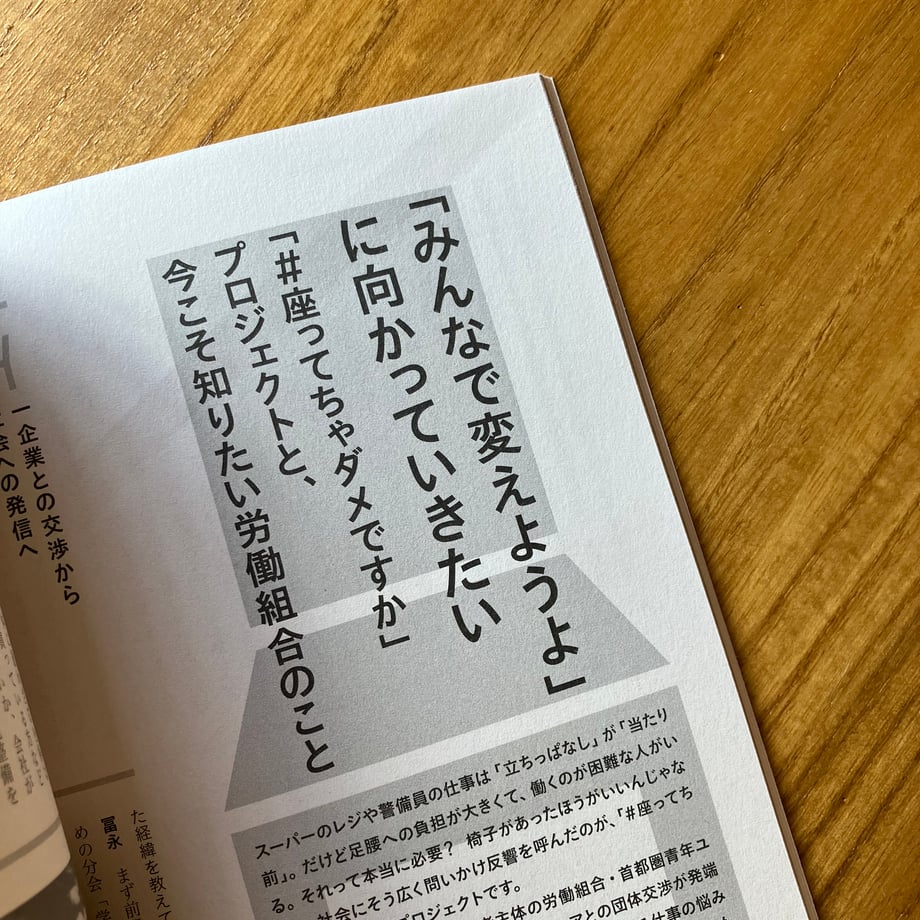 「みんなで変えようよ」
に向かっていきたい
「#座ってちゃダメですか」
プロジェクトと、
今こそ知りたい労働組合のこと
スーパーのレジや警備員の仕事は「立ちっぱなし」が「当たり
前」。だけど足腰への負担が大きくて、働くのが困難な人がい
る。それって本当に必要? 椅子があったほうがいいんじゃな
社会にそう広く問いかけ反響を呼んだのが、「#座ってち
プロジェクトです。
主体の労働組合・首都圏青年ユ
との団体交渉が発端
仕事の悩み
一企業との交渉から
会への発信へ
た経緯を教えて
冨永 まず前
めの分会「学